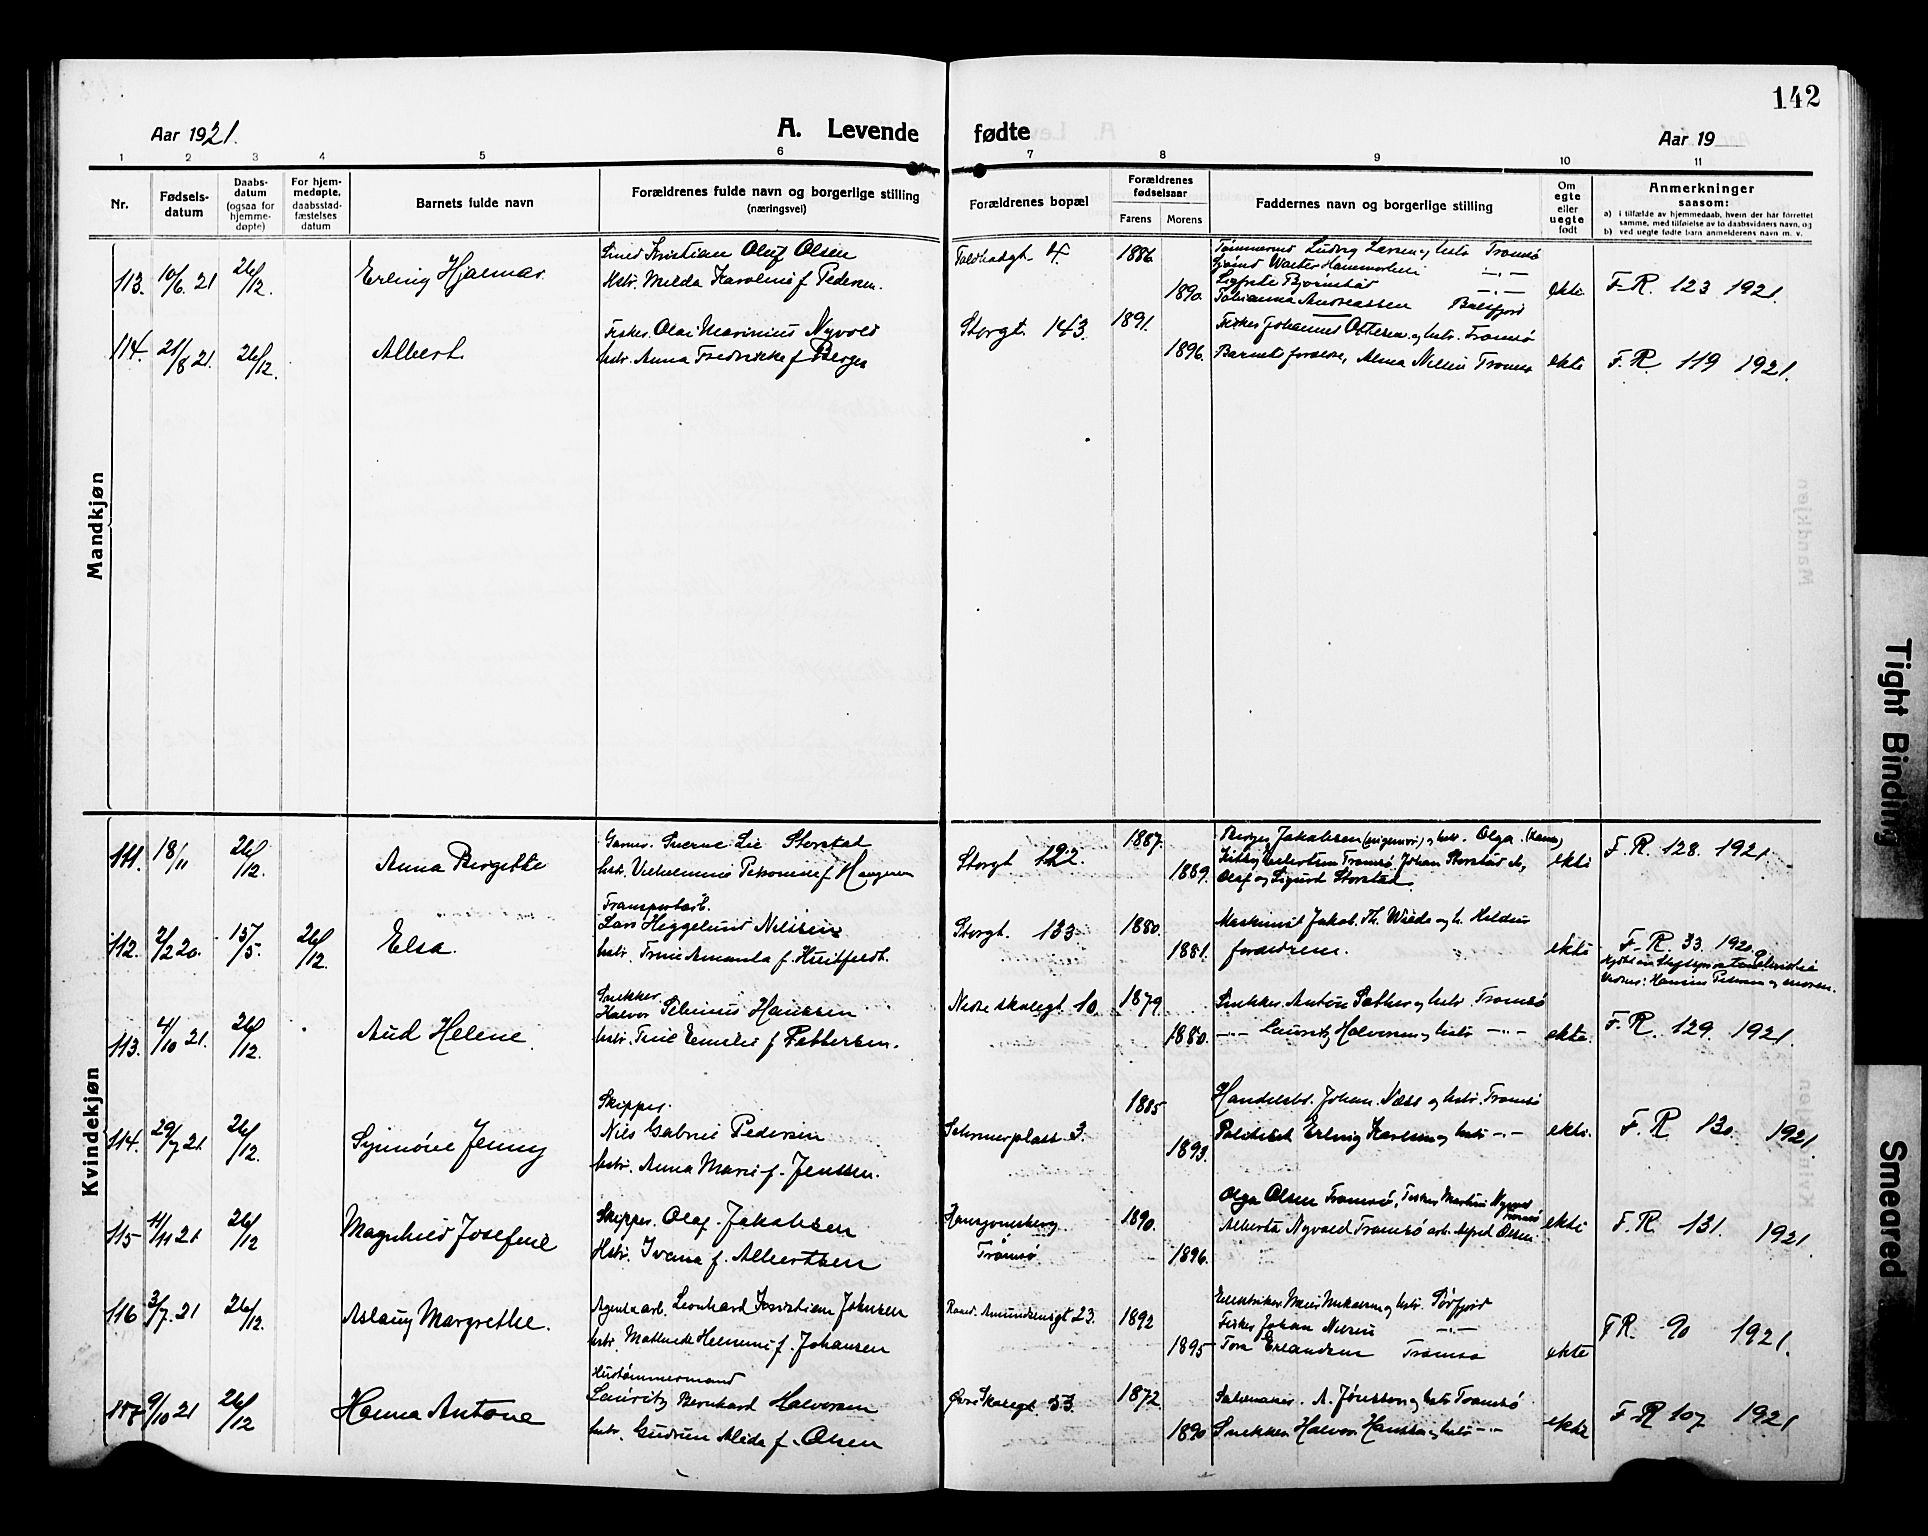 142
Aar 1921.
A. Levende fødte
Aar 19
1 2 3 4 5 6 7 8 9 10 11
Nr.
Fødsels-
datum
Daabs-
datum
(ogsaa for
hjemme-
døpte)
For hjem-
medøpte,
daabsstad-
fæstelses
datum
Barnets fulde navn
Forældrenes fulde navn og borgerlige stilling
(næringsvei)
Forældrenes bopæl
Forældrenes
fødselsaar
Farens Morens
Faddernes navn og borgerlige stilling
Om
egte
eller
uegte
født
Anmerkninger
saasom:
a) i tilfælde av hjemmedaab, hvem der har forrettet
samme, med tilføielse av to daabsvidners navn, og
b) ved uegte fødte barn anmelderens navn m. v.
Mandkjøn
113. 10/6. 21 26/12. Erling Hjalmar
Smed Kristian Oluf Olsen
Hstr. Milda Karoline f. Pedersen.
4. 1886 1890.
Tømmermd Ludvig Larsen og hstr Tromsø
Johanna Andreassen Balsfjord
ekte F.R. 123 1921.
114. 21/8 21. 26/12. Albert
Fisker. Olai Marinius Nyvold
hstr. Anna Fredrikke f. Berger
Storgt. 143. 1891. 1896.
Fisker Johannes Ottesen og hstr. Tromsø
Barnets forældre, Alma Nilsen Tromsø
ekte F.R. 119 1921.
Kvindekjøn
111. 18/11 26/12. Anna Bergitte
Sverre Lie Storstad
Storgt 122. 1887. 1889.
Olaf og Sigurd Storstad
ekte F.R. 128. 1921
112. 2/2 20. 15/5. 26/12. Elsa.
Transportarb.
Lars Heggelund Nilsen
hstr. Trine Amanda f. Hvitfeldt.
Storgt. 133 1880. 1881.
Maskinist Jakob. Th. Wilds og h. Kildun
forældrene.
ekte F.R. 33. 1920.
113. 4/10 21. 26/12. Aud Helene
Snekker
Halvor Selmius Hanssen
hstr. Trine Emilie f. Pettersen.
Nedre skolegt 10. 1879 1880.
Snekker Anton Sather og hstr. Tromsø
-"- Lauritz Halvorsen og hstr -"-
ekte. F.R. 129. 1921.
114. 29/7 21. 26/12. Synnöve Jenny
Skipper.
Nils Gabriel Pedersen
hstr. Anna Marie f. Jenssen.
3. 1885 1893.
Handelsbt. Johan. Næss og hstr. Tromsø
Politibet Erling Karlsen og hstr -"-
ekte. F.R. 130. 1921.
115 11/11 21 26/12 Magnhild Josefine
Skipper. Olaf. Jakobsen
Hstr. Ivana f. Albertsen
Tromsø
1890. 1896.
Olga Olsen Tromsø, Fisker Martin Nyvold Tromsø
Alberta Nyvold Tromsø arb. Alfred Olsen
ekte F.R. 131. 1921.
116 3/7. 21 26/12. Aslaug Margrethe.
Leonhard Kristian Johnsen
hstr. Mathilde Helmine f. Johansen
Roald. Amundsensgt 23. 1892 1895
Fisker Johan Nilsen -"-
Tora Erlandsen Tromsø
ekte F.R. 90 1921.
117 9/10 21 26/12 Hanna Antone
Hustømmermand
Lauritz Bernhard Halvorsen
hstr. Gudrun Alida f. Olsen
Øvre Skolegt 53 1872 1890
A. Jönsson og hstr Tromsø
Snekker Halvor Hanssen og hstr -"-
ekte F.R 107 1921
Tight Binding
Smeared